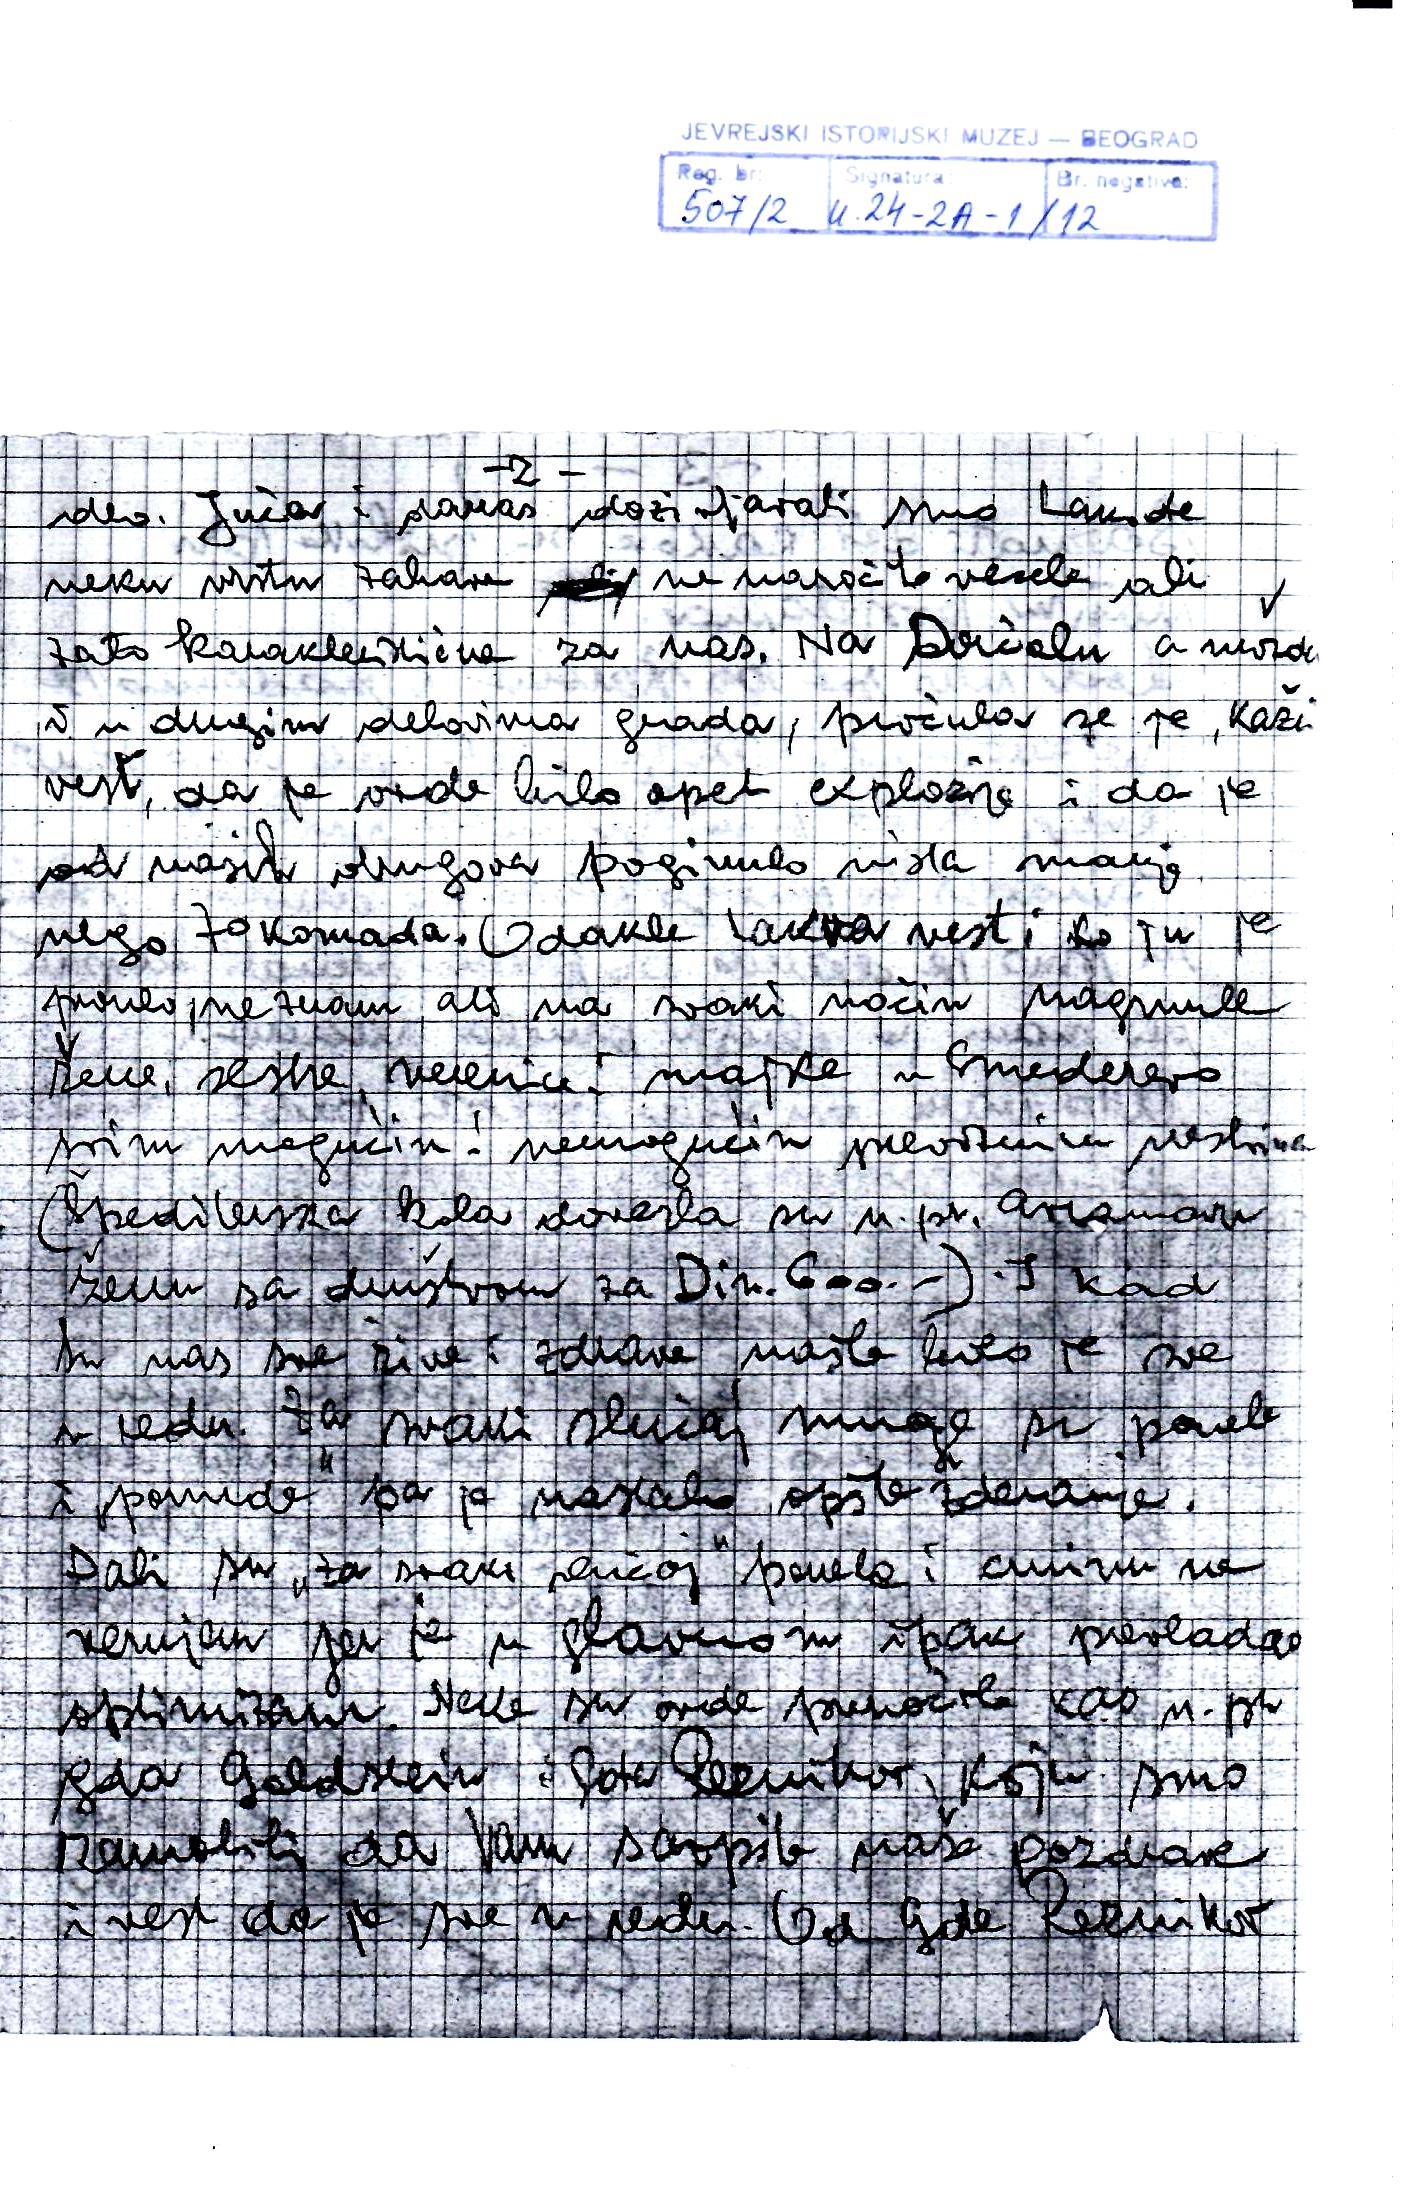 JEVREJSKI ISTORIJSKI MUZEJ — BEOGRAD
Reg. br: Signatura: Br. negativa:
507/2 K.24-2A-1/12
-2-
deo. Jučer i danas doživljavali smo takođe
neku vrstu zabave ne naročito vesele ali
zato karakteristične za nas. Na Dorćolu a možda
i u drugim delovima grada, pročula se je, kažu
vest, da je ovde bilo opet explozije i da je
od naših drugova poginulo ništa manje
nego 70 komada. Odakle takva vest i ko ju je
proneo, ne znam ali na svaki način nagrnule
žene, sestre, verenice i majke u Smederevo
svim mogućim i nemogućim prevoznim sredstvima
(Špediterska kola dovezla su n. pr. ženu
sa društvom za Din. 600.-). I kad
su nas sve žive i zdrave našle bilo je sve
u redu. Za svaki slučaj mnoge su ponele
i „ponude“ pa je nastalo opšte žderanje.
Dali su „za svaki slučaj“ ponele i crninu ne
verujem jer je u glavnom ipak prevladao
optimizam. Neke su ovde prenoćile kao n. pr.
gđa Goldstein i gđa Reznikov, koju smo
zamolili da Vam saopšti naše pozdrave
i vest da je sve u redu. Od gđe Reznikov